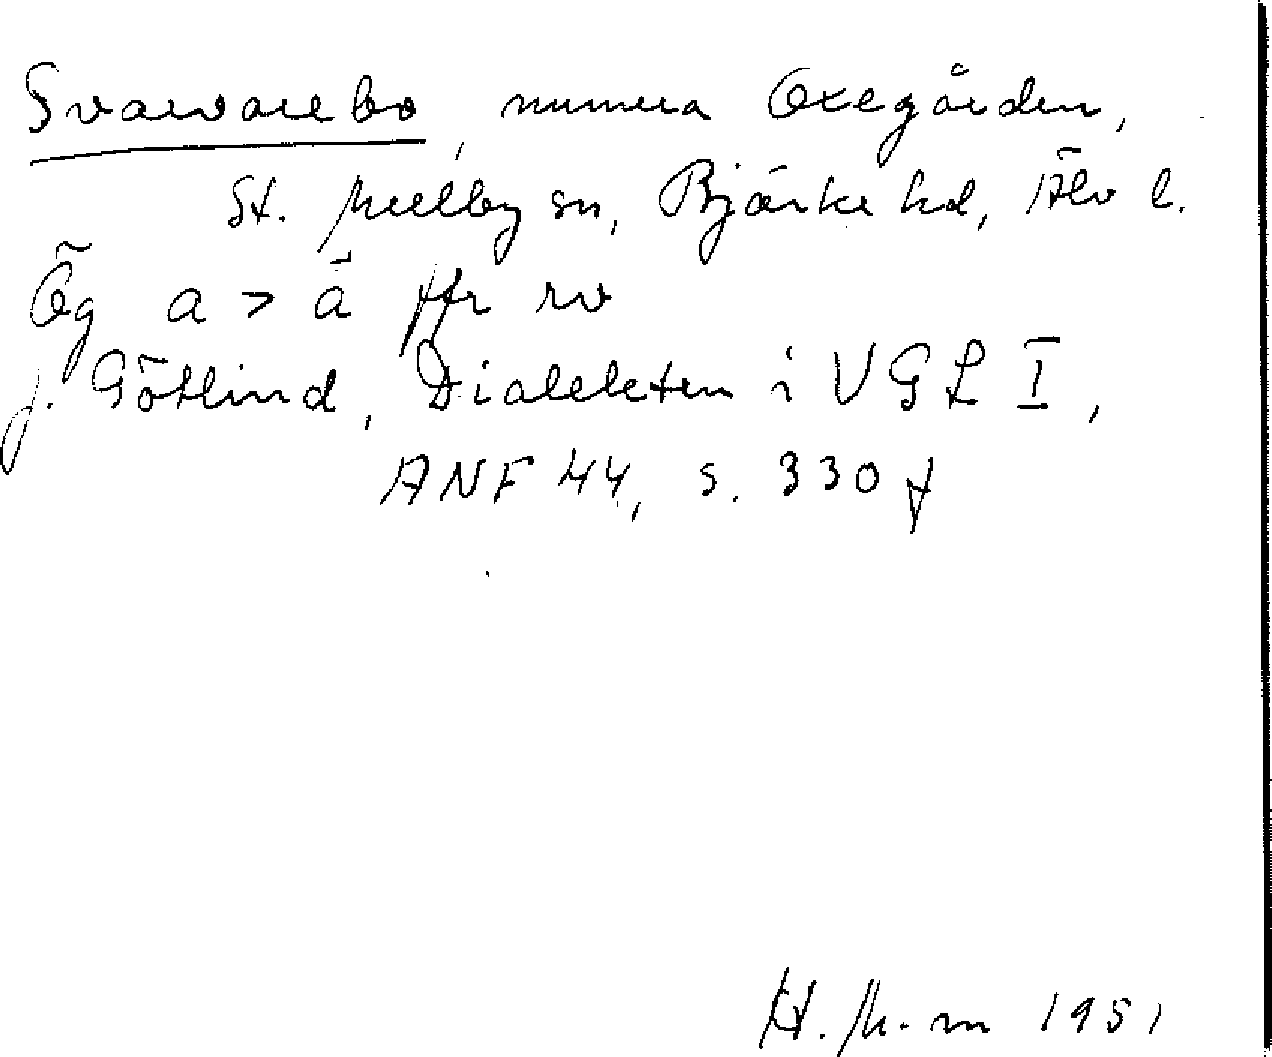 Svarvarebo, numera Oxegården,
St. Mellby sn, Bjärke hd, Älv l.
Ög a > ä ffr rv
J. Götlind, Dialekten i VGL I,
ANF 44, s. 330 f
H. M-m 1951